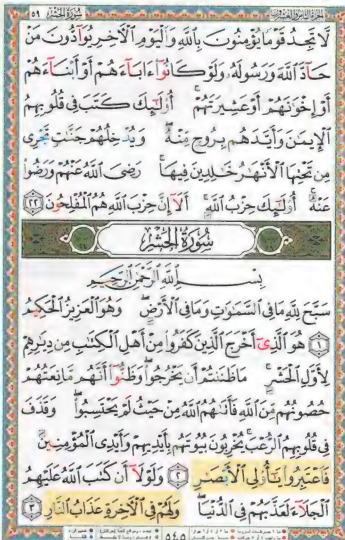 الجزء الثامن والعشرون سورة الحشر ٥٩
لَّا تَجِدُ قَوْمًا يُؤْمِنُونَ بِٱللَّهِ وَٱلْيَوْمِ ٱلْءَاخِرِ يُوَآدُّونَ مَنْ
حَآدَّ ٱللَّهَ وَرَسُولَهُۥ وَلَوْ كَانُوٓا۟ ءَابَآءَهُمْ أَوْ أَبْنَآءَهُمْ
أَوْ إِخْوَٰنَهُمْ أَوْ عَشِيرَتَهُمْ ۚ أُو۟لَٰٓئِكَ كَتَبَ فِى قُلُوبِهِمُ
ٱلْإِيمَٰنَ وَأَيَّدَهُم بِرُوحٍ مِّنْهُ ۖ وَيُدْخِلُهُمْ جَنَّٰتٍ تَجْرِى
مِن تَحْتِهَا ٱلْأَنْهَٰرُ خَٰلِدِينَ فِيهَا ۚ رَضِىَ ٱللَّهُ عَنْهُمْ وَرَضُوا۟
عَنْهُ ۚ أُو۟لَٰٓئِكَ حِزْبُ ٱللَّهِ ۚ أَلَآ إِنَّ حِزْبَ ٱللَّهِ هُمُ ٱلْمُفْلِحُونَ ٢٢
سُورَةُ الحَشْرِ
بِسْمِ ٱللَّهِ ٱلرَّحْمَٰنِ ٱلرَّحِيمِ
سَبَّحَ لِلَّهِ مَا فِى ٱلسَّمَٰوَٰتِ وَمَا فِى ٱلْأَرْضِ ۖ وَهُوَ ٱلْعَزِيزُ ٱلْحَكِيمُ
١ هُوَ ٱلَّذِىٓ أَخْرَجَ ٱلَّذِينَ كَفَرُوا۟ مِنْ أَهْلِ ٱلْكِتَٰبِ مِن دِيَٰرِهِمْ
لِأَوَّلِ ٱلْحَشْرِ ۚ مَا ظَنَنتُمْ أَن يَخْرُجُوا۟ ۖ وَظَنُّوٓا۟ أَنَّهُم مَّانِعَتُهُمْ
حُصُونُهُم مِّنَ ٱللَّهِ فَأَتَىٰهُمُ ٱللَّهُ مِنْ حَيْثُ لَمْ يَحْتَسِبُوا۟ ۖ وَقَذَفَ
فِى قُلُوبِهِمُ ٱلرُّعْبَ ۚ يُخْرِبُونَ بُيُوتَهُم بِأَيْدِيهِمْ وَأَيْدِى ٱلْمُؤْمِنِينَ
فَٱعْتَبِرُوا۟ يَٰٓأُو۟لِى ٱلْأَبْصَٰرِ ٢ وَلَوْلَآ أَن كَتَبَ ٱللَّهُ عَلَيْهِمُ
ٱلْجَلَآءَ لَعَذَّبَهُمْ فِى ٱلدُّنْيَا ۖ وَلَهُمْ فِى ٱلْءَاخِرَةِ عَذَابُ ٱلنَّارِ ٣
٥٤٥